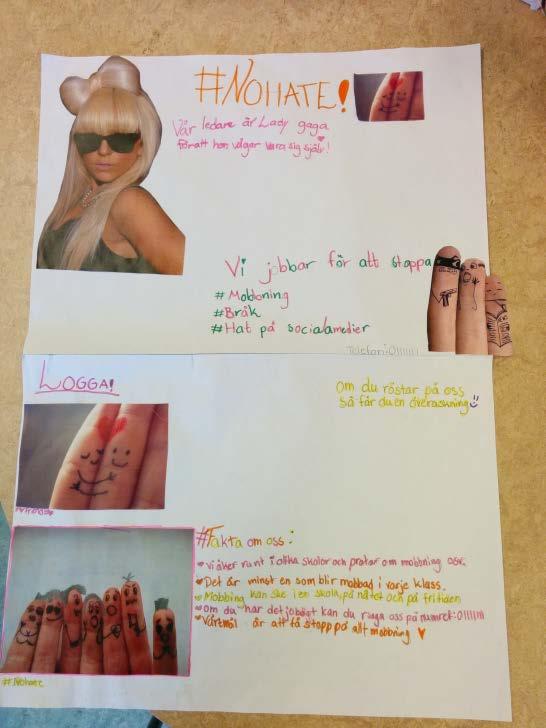 #NOHATE!
Vår ledare är Lady gaga
föratt hon vågar vara sig själv!
Vi jobbar för att stoppa
#Mobbning
#Bråk
#Hat på socialamedier
Telefon:0111111
LOGGA!
Om du röstar på oss
så får du en överasuning
#Fakta om oss:
Vi åker runt i olika skolor och pratar om mobbning osv.
Det är minst en som blir mobbad i varje klass.
Mobbing kan ske i en skola, på nätet och på fritiden
Om du har det jobbigt kan du ringa oss på numret:0111111
Vårt mål är att få stopp på allt mobbning
#Nohate